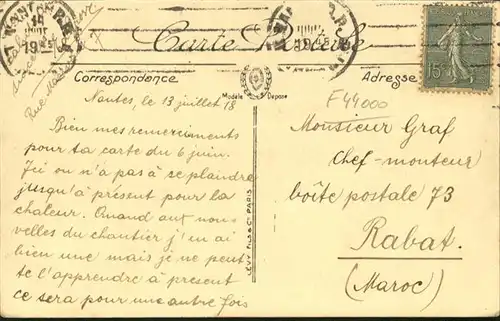 Carte Postale
Correspondance
Adresse
Modèle Déposé
15
F44000
Nantes, le 13 juillet 18
Bien mes remerciments
pour ta carte du 6 juin.
Ici on n'a pas à se plaindre
jusqu'à présent pour la
chaleur. Quand aut nou-
velles du chantier j'en ai
bien une mais je ne peut
te l'apprendre à présent
ce sera pour une autre fois
LEVY FILS & Cie PARIS
Monsieur Graf
chef-monteur
boîte postale 73
Rabat.
(Maroc)